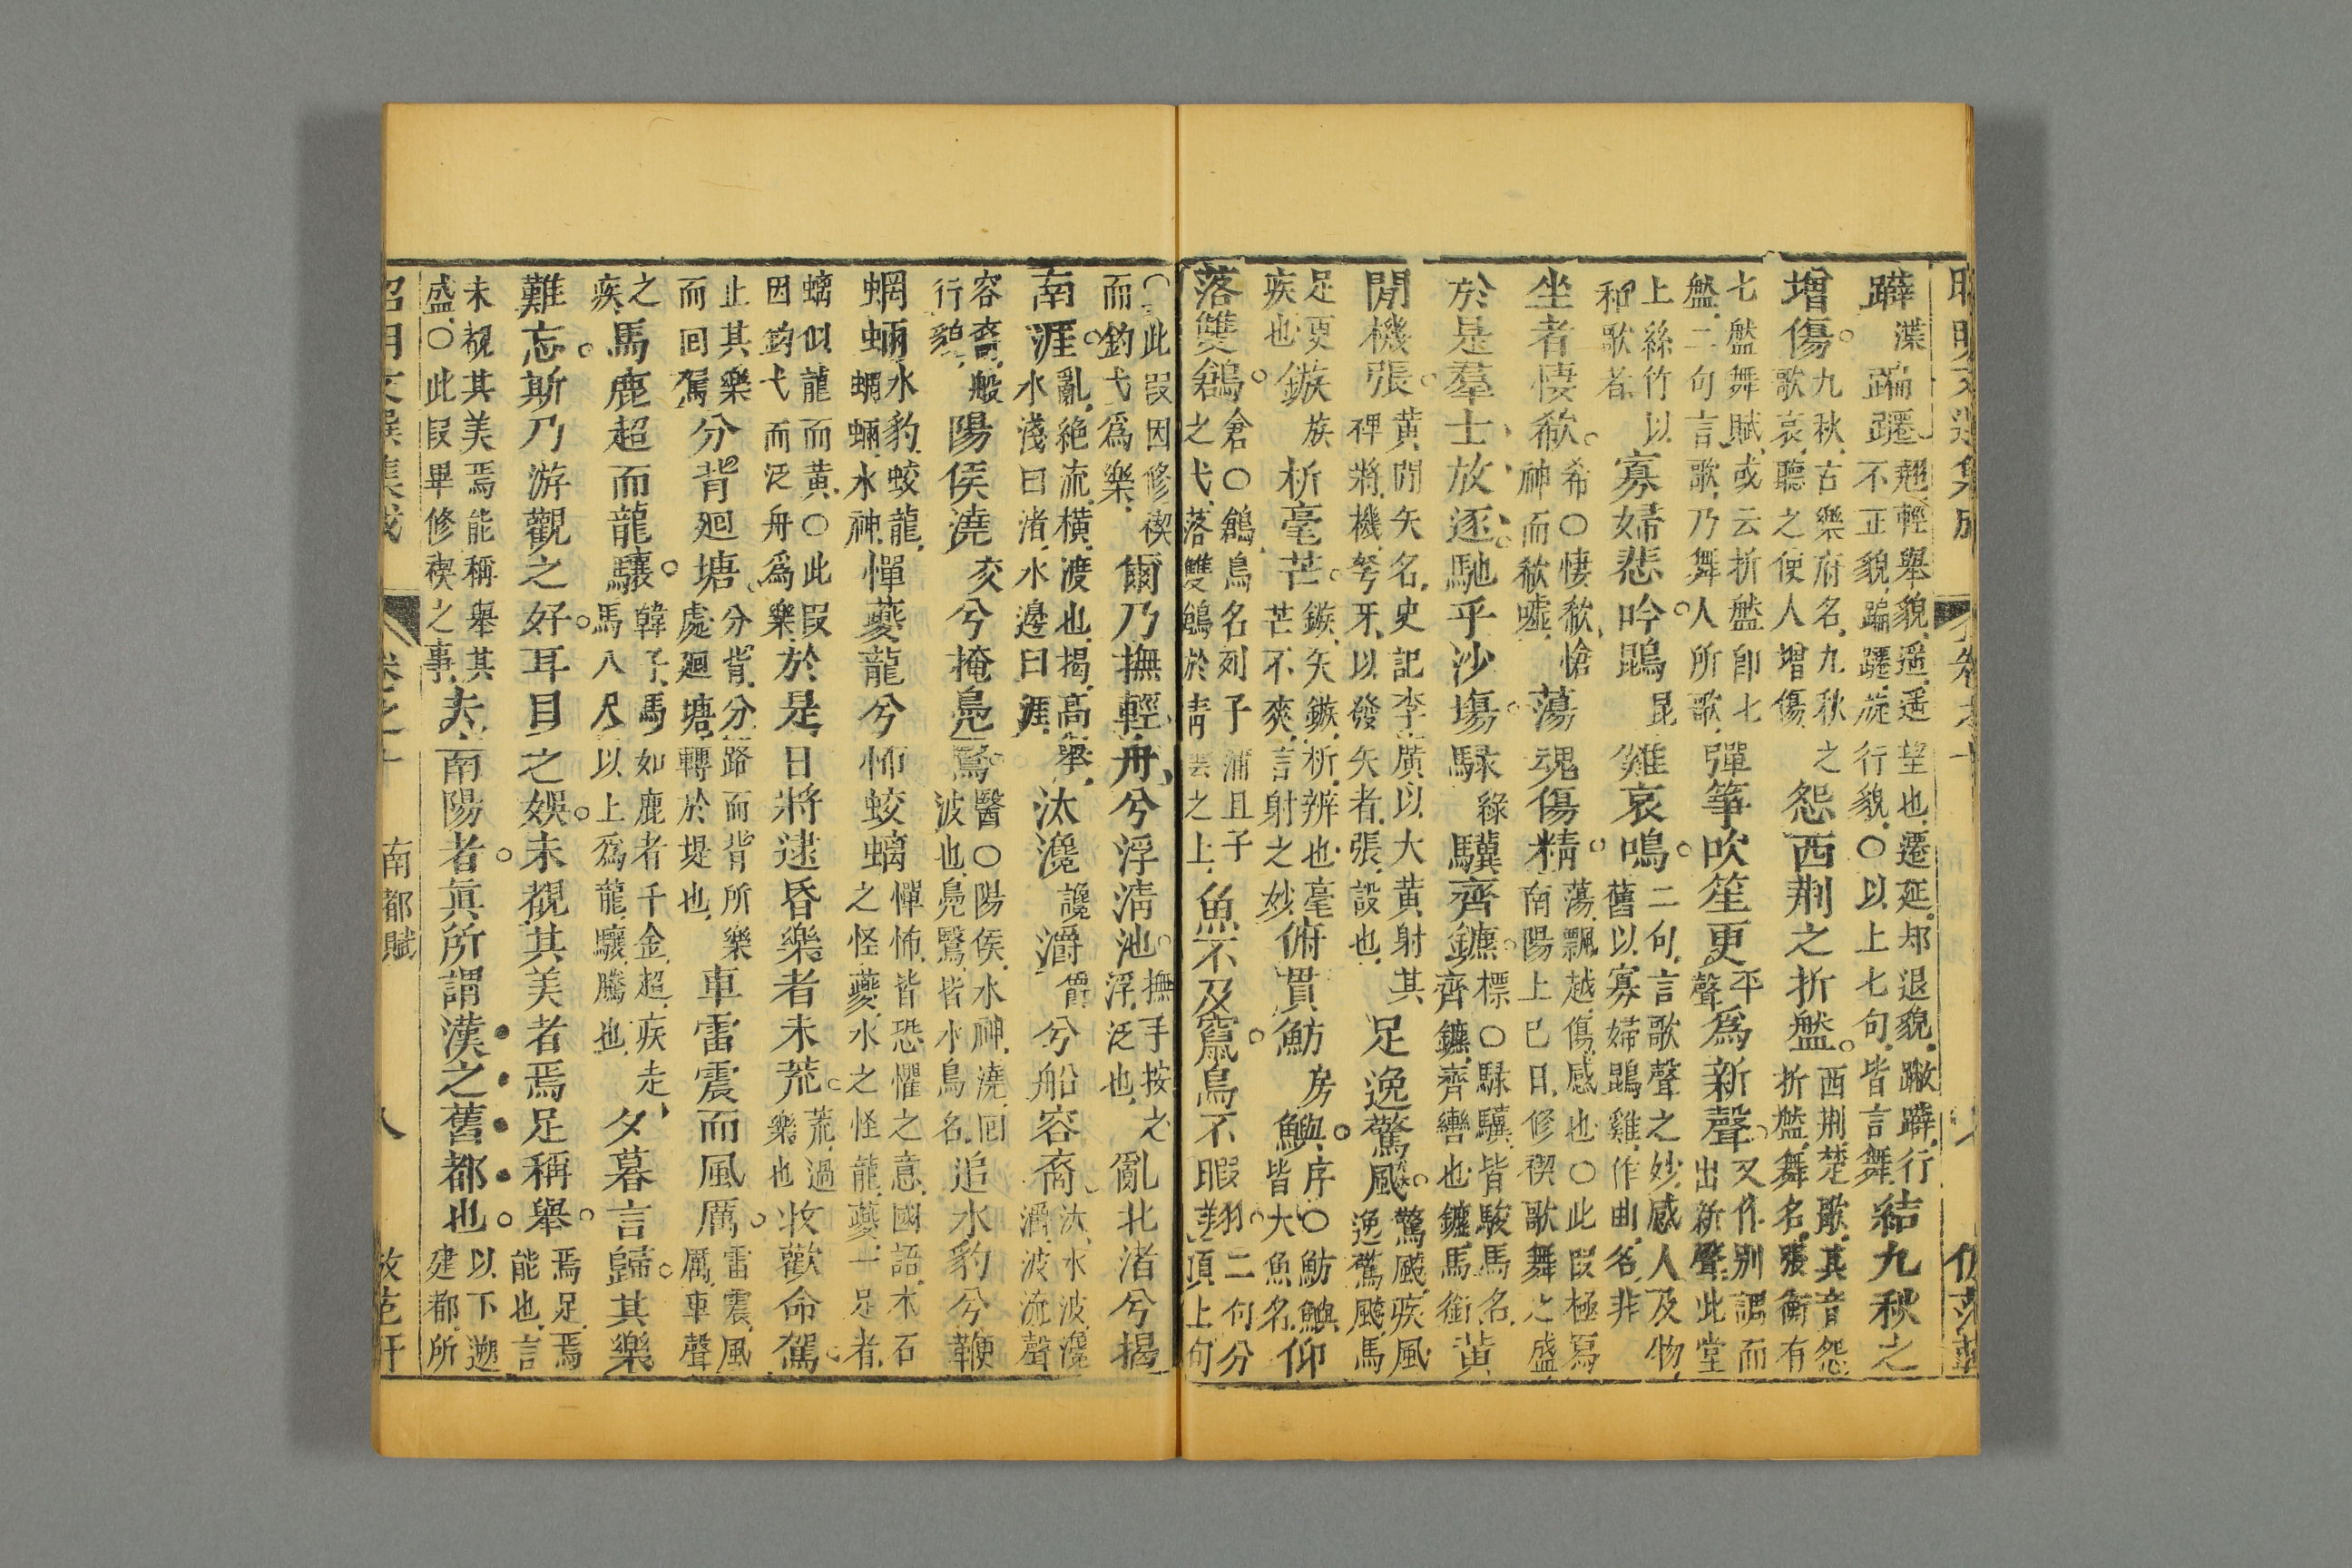 躃渫蹁躚翹輕舉貌遥遥望也遷延却退貌蹴躃行不正貌蹁躚旋行貌○以上七句皆言舞結九秋之
增傷九秋古樂府名九秋之歌哀聽之使人增傷怨西荆之折盤西荆楚歌其音怨折盤舞名張衡有
七盤舞賦或云折盤卽七盤二句言歌乃舞人所歌彈箏吹笙更平聲為新聲又作別調而出新聲此堂
上絲竹以和歌者寡婦悲吟鵾昆雞哀鳴二句言歌聲之妙感人及物舊以寡婦鵾雞作曲名非
坐者悽欷希○悽欷愴神而欷噓蕩魂傷精蕩飄越傷感也○此叚極寫南陽上巳日修禊歌舞之盛
於是羣士放逐馳乎沙塲騄綠驥齊鑣標○騄驥皆駿馬名齊鑣齊轡也鑣馬銜黃
閒機張黃閒矢名史記李廣以大黃射其裨將機弩牙以發矢者張設也足逸驚風驚飈疾風逸驚飈馬
足更疾也鏃族析毫芒鏃矢鏃析辨也毫芒不爽言射之妙俯貫魴房鱮序○魴鱮皆大魚名仰
落雙鶬倉○鶬鳥名列子蒲且子之弋落雙鶬於青雲之上魚不及竄鳥不暇翔二句分頂上句
○此叚因修禊而釣弋爲樂爾乃撫輕舟兮浮淸池撫手按之浮泛也亂北渚兮揭
南涯亂絶流橫渡也揭高舉水淺曰渚水邊曰涯汰瀺讒灂僝兮船容裔汰水波瀺灂波流聲
容裔般行貌陽侯澆爻兮掩鳧鷖醫○陽侯水神澆囘波也鳧鷖皆水鳥名追水豹兮鞭
蝄蜽水豹蛟龍蝄蜽水神憚夔龍兮怖蛟螭憚怖皆恐懼之意國語木石之怪夔水之怪龍夔一足者
螭似龍而黃○此叚因釣弋而泛舟爲樂於是日將逮昏樂者未荒荒過樂也收歡命駕
止其樂而回駕分背廻塘分背分路而背所樂處廻塘轉於堤也車雷震而風厲雷震風厲車聲
之疾馬鹿超而龍驤韓子馬如鹿者千金超疾走馬八尺以上爲龍驤騰也夕暮言歸其樂
難忘斯乃游觀之好耳目之娛未覩其美者焉足稱舉焉足焉能也言
未覩其美焉能稱舉其盛○此叚畢修禊之事夫南陽者眞所謂漢之舊都也以下遡建都所
南都賦